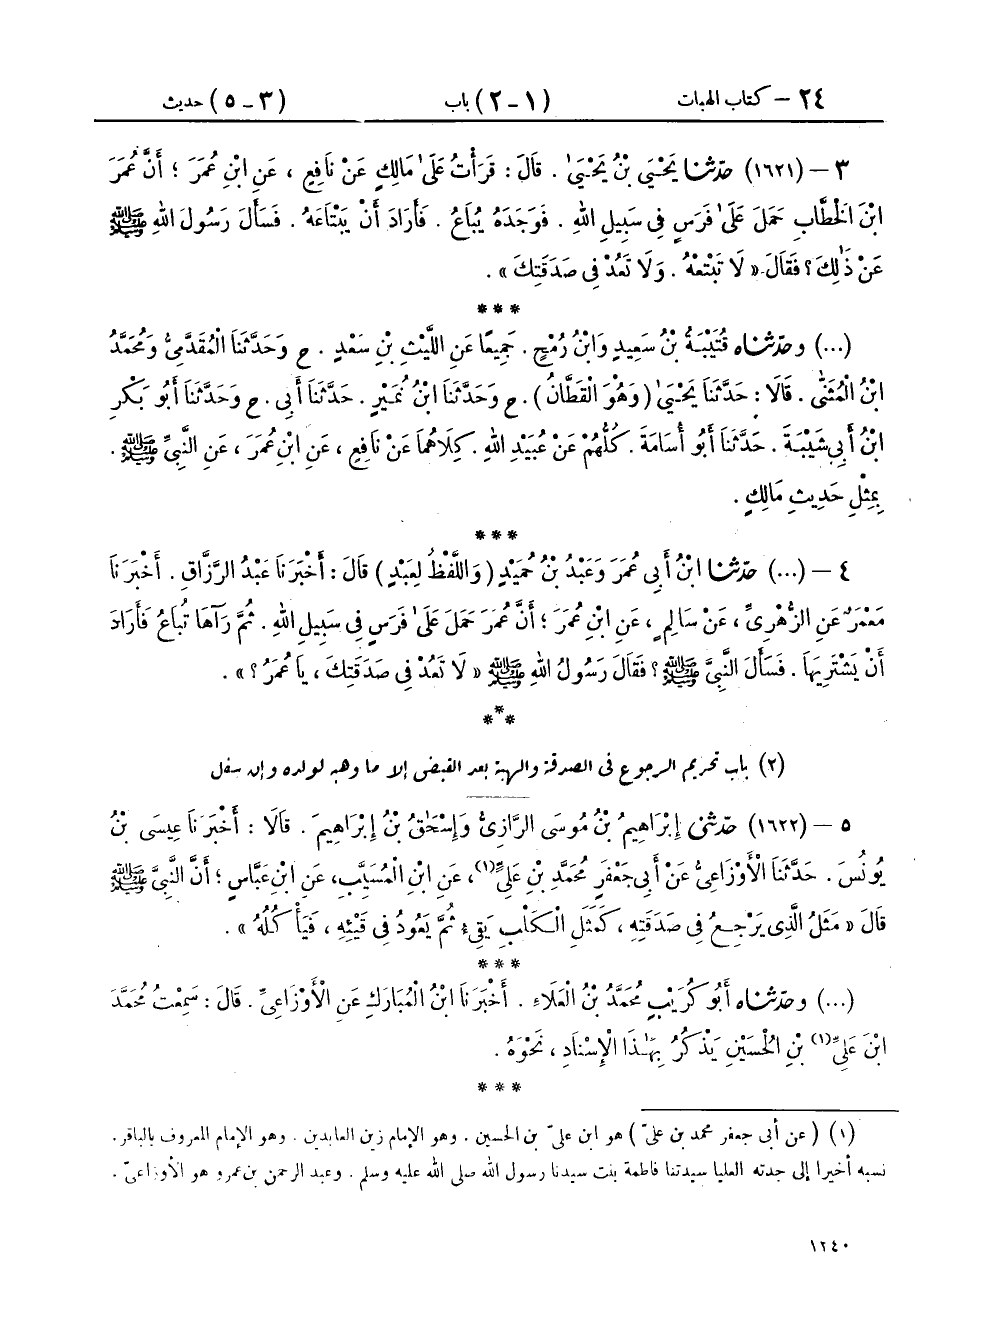 ٢٤ – كتاب الهبات (١ – ٢) باب (٣ – ٥) حديث
٣ – (١٦٢١) حدّثنا يَحْيَى بْنُ يَحْيَىٰ . قَالَ : قَرَأْتُ عَلَىٰ مَالِكٍ عَنْ نَافِعٍ ، عَنِ ابْنِ عُمَرَ ؛ أَنَّ عُمَرَ
ابْنَ الْخَطَّابِ حَمَلَ عَلَىٰ فَرَسٍ فِى سَبِيلِ اللهِ . فَوَجَدَهُ يُبَاعُ . فَأَرَادَ أَنْ يَبْتَاعَهُ . فَسَأَلَ رَسُولَ اللهِ ﷺ
عَنْ ذَٰلِكَ ؟ فَقَالَ « لَا تَبْتَعْهُ . وَلَا تَعُدْ فِى صَدَقَتِكَ » .
* * *
(...) وحدّثناه قُتَيْبَةُ بْنُ سَعِيدٍ وَابْنُ رُمْحٍ . جَمِيعًا عَنِ اللَّيْثِ بْنِ سَعْدٍ . ح وَحَدَّثَنَا الْمُقَدَّمِىُّ وَمُحَمَّدُ
ابْنُ الْمُثَنَّىٰ . قَالَا : حَدَّثَنَا يَحْيَىٰ (وَهُوَ الْقَطَّانُ) . ح وَحَدَّثَنَا ابْنُ نُمَيْرٍ . حَدَّثَنَا أَبِى . ح وَحَدَّثَنَا أَبُو بَكْرِ
ابْنُ أَبِى شَيْبَةَ . حَدَّثَنَا أَبُو أُسَامَةَ . كُلُّهُمْ عَنْ عُبَيْدِ اللهِ . كِلَاهُمَا عَنْ نَافِعٍ ، عَنِ ابْنِ عُمَرَ ، عَنِ النَّبِىِّ ﷺ .
بِمِثْلِ حَدِيثِ مَالِكٍ .
* * *
٤ – (...) حدّثنا ابْنُ أَبِى عُمَرَ وَعَبْدُ بْنُ حُمَيْدٍ (وَاللَّفْظُ لِعَبْدٍ) قَالَ : أَخْبَرَنَا عَبْدُ الرَّزَّاقِ . أَخْبَرَنَا
مَعْمَرٌ عَنِ الزُّهْرِىِّ ، عَنْ سَالِمٍ ، عَنِ ابْنِ عُمَرَ ؛ أَنَّ عُمَرَ حَمَلَ عَلَىٰ فَرَسٍ فِى سَبِيلِ اللهِ . ثُمَّ رَآهَا تُبَاعُ فَأَرَادَ
أَنْ يَشْتَرِيَهَا . فَسَأَلَ النَّبِىَّ ﷺ ؟ فَقَالَ رَسُولُ اللهِ ﷺ « لَا تَعُدْ فِى صَدَقَتِكَ ، يَا عُمَرُ ؟ » .
* * *
(٢) باب تحريم الرجوع فى الصدقة والهبة بعد القبض إلا ما وهبه لولده وإن سفل
٥ – (١٦٢٢) حدّثنى إِبْرَاهِيمُ بْنُ مُوسَى الرَّازِىُّ وَإِسْحَٰقُ بْنُ إِبْرَاهِيمَ . قَالَا : أَخْبَرَنَا عِيسَى بْنُ
يُونُسَ . حَدَّثَنَا الْأَوْزَاعِىُّ عَنْ أَبِى جَعْفَرٍ مُحَمَّدِ بْنِ عَلِىٍّ(١) ، عَنِ ابْنِ الْمُسَيَّبِ ، عَنِ ابْنِ عَبَّاسٍ ؛ أَنَّ النَّبِىَّ ﷺ
قَالَ « مَثَلُ الَّذِى يَرْجِعُ فِى صَدَقَتِهِ ، كَمَثَلِ الْكَلْبِ يَقِىءُ ثُمَّ يَعُودُ فِى قَيْئِهِ ، فَيَأْكُلُهُ » .
* * *
(...) وحدّثناه أَبُو كُرَيْبٍ مُحَمَّدُ بْنُ الْعَلَاءِ . أَخْبَرَنَا ابْنُ الْمُبَارَكِ عَنِ الْأَوْزَاعِىِّ . قَالَ : سَمِعْتُ مُحَمَّدَ
ابْنَ عَلِىِّ(١) بْنِ الْحُسَيْنِ يَذْكُرُ بِهَٰذَا الْإِسْنَادِ ، نَحْوَهُ .
* * *
(١) (عن أبى جعفر محمد بن علىّ) هو ابن علىّ بن الحسين . وهو الإمام زين العابدين . وهو الإمام المعروف بالباقر .
نسبه أخيرا إلى جدته العليا سيدتنا فاطمة بنت سيدنا رسول الله صلى الله عليه وسلم . وعبد الرحمن بن عمرو هو الأوزاعىّ .
١٢٤٠